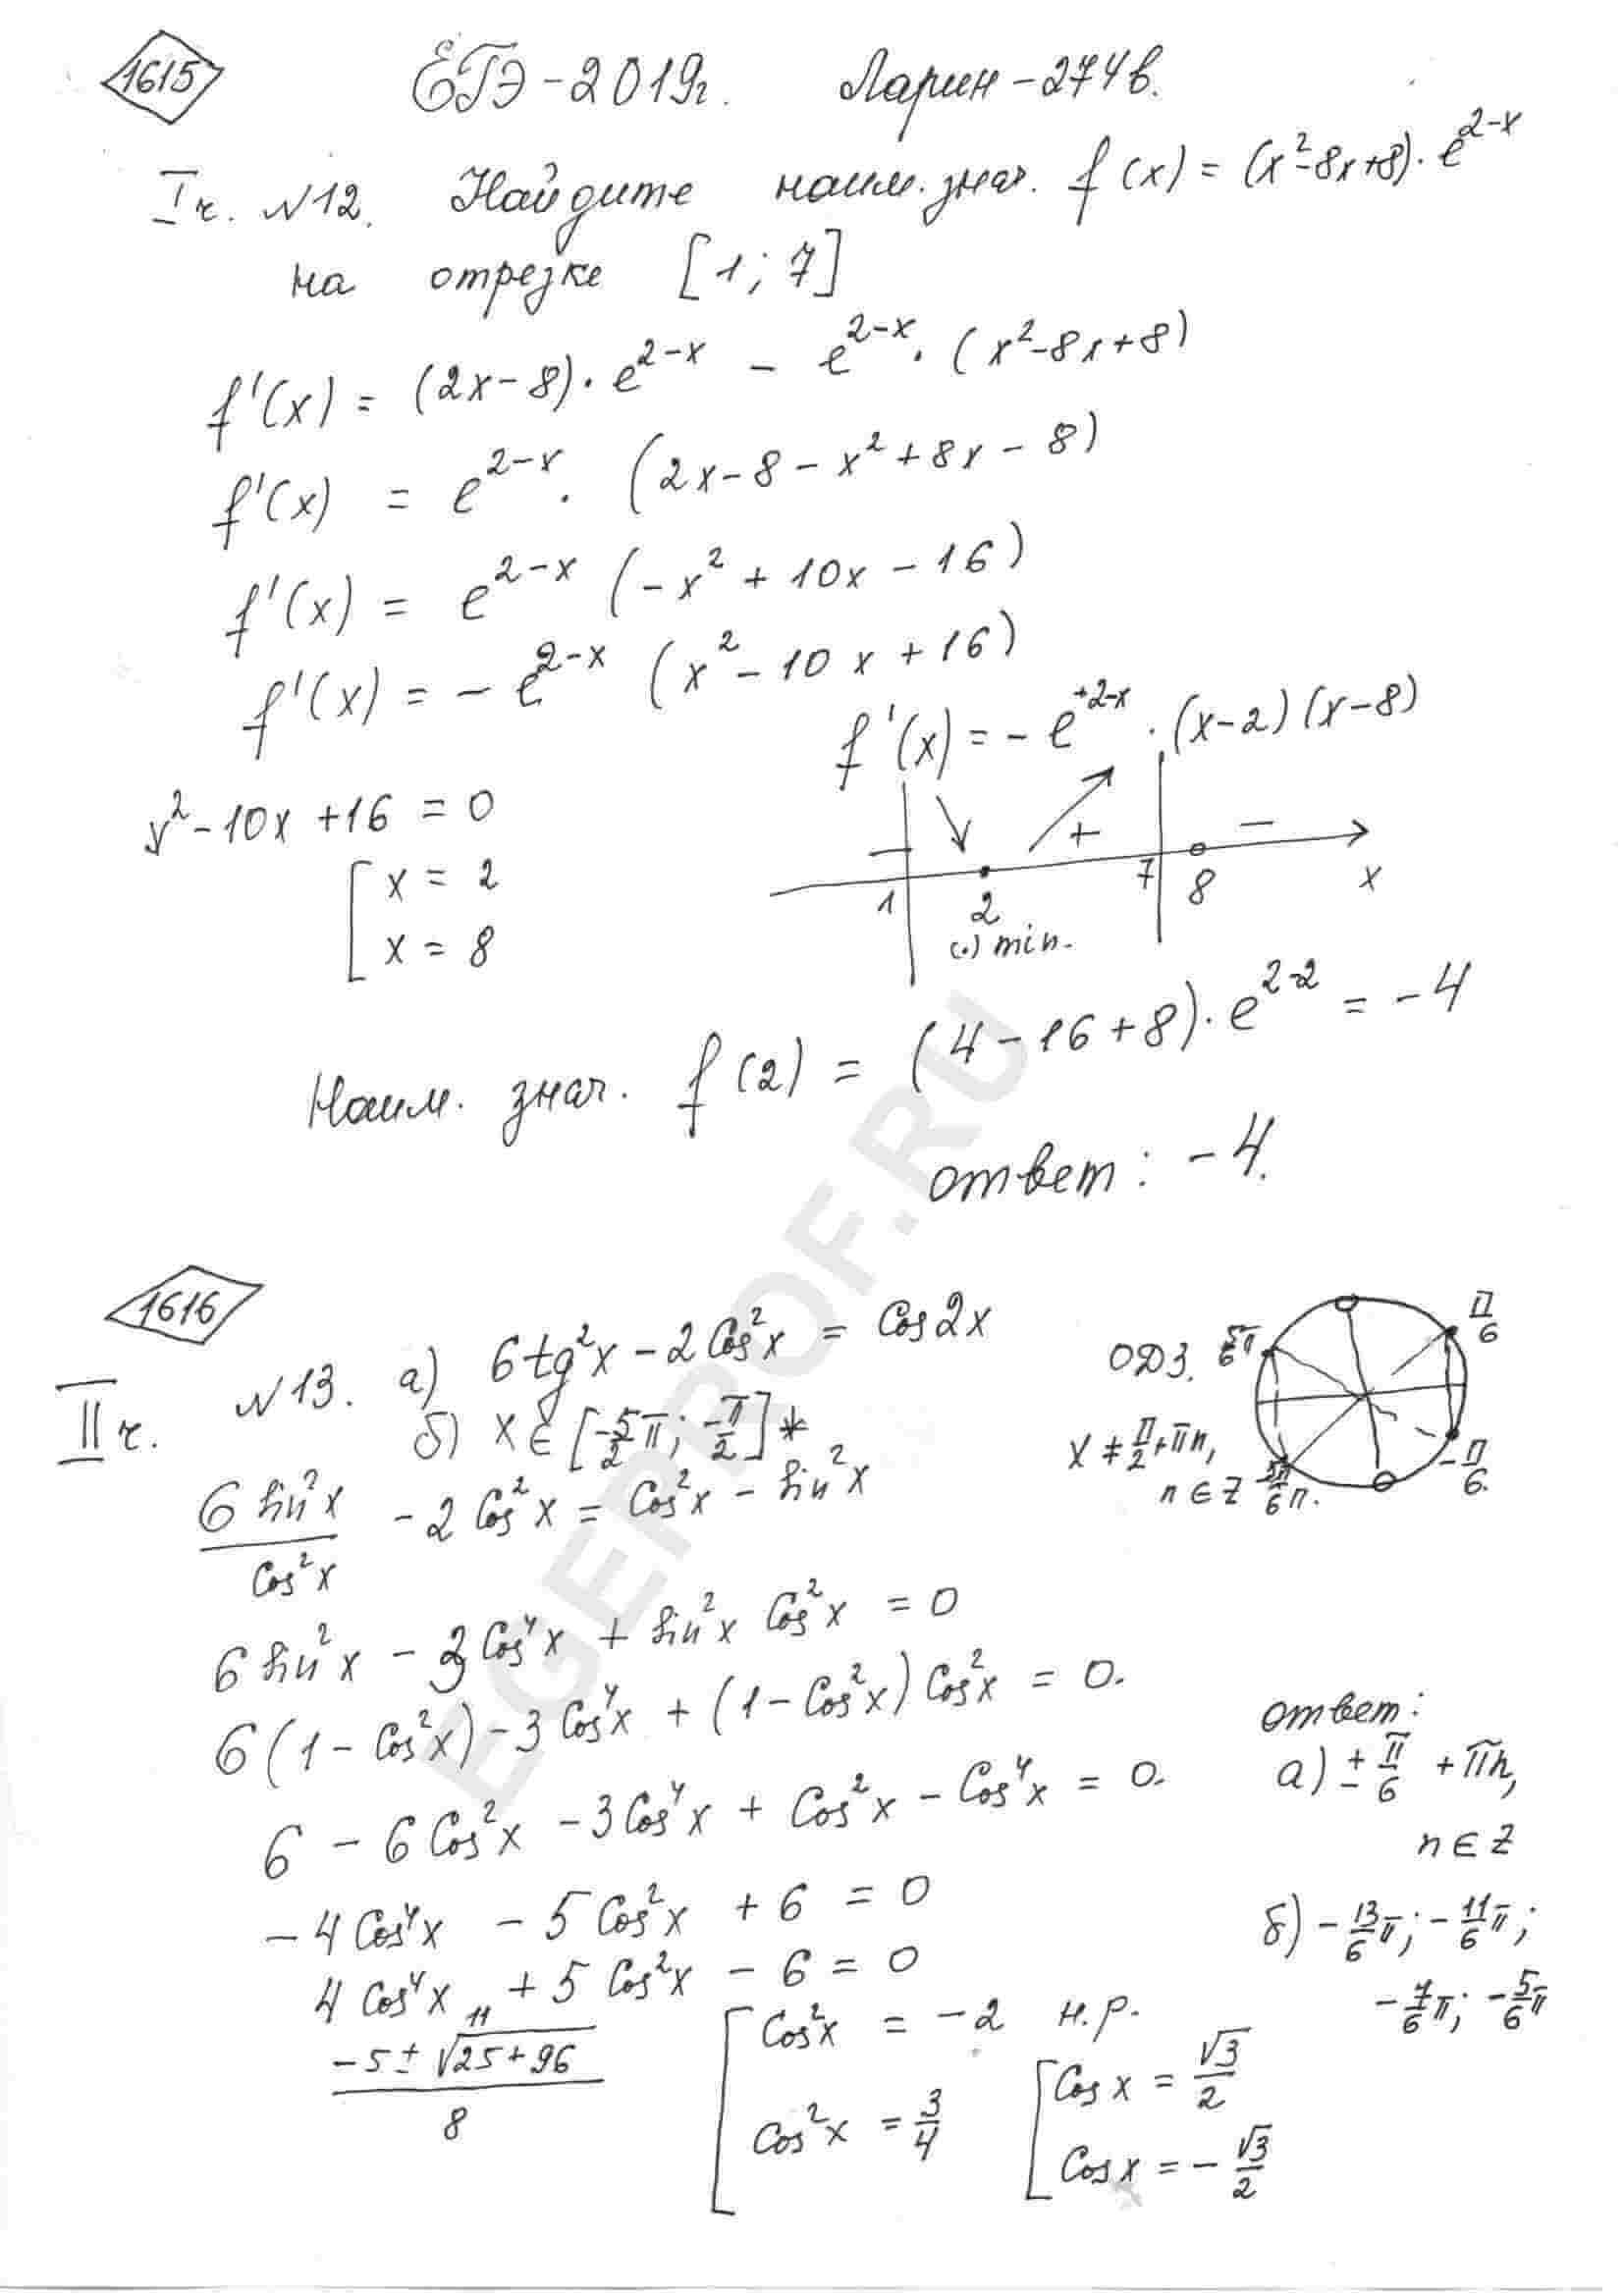 1615 ЕГЭ-2019г. Ларин-274в.
I ч. №12. Найдите наим. знач. f(x) = (x²-8x+8)·e^(2-x)
на отрезке [1; 7]
f'(x) = (2x-8)·e^(2-x) - e^(2-x)·(x²-8x+8)
f'(x) = e^(2-x)·(2x-8-x²+8x-8)
f'(x) = e^(2-x) (-x²+10x-16)
f'(x) = -e^(2-x) (x²-10x+16)
f'(x) = -e^(+2-x)·(x-2)(x-8)
x²-10x+16 = 0
[ x = 2
x = 8
- + -
1 2 7 8 x
(·) min.
Наим. знач. f(2) = (4-16+8)·e^(2-2) = -4
ответ: -4.
1616
II ч. №13. а) 6tg²x - 2Cos²x = Cos2x
б) x ∈ [-5/2 π; -π/2] *
ОДЗ.
x ≠ π/2 + πn,
n ∈ Z
5π/6 π/6
-5/6 π. -π/6.
6 sin²x / Cos²x - 2Cos²x = Cos²x - sin²x
6 sin²x - 3Cos⁴x + sin²x Cos²x = 0
6(1-Cos²x) - 3Cos⁴x + (1-Cos²x)Cos²x = 0.
6 - 6Cos²x - 3Cos⁴x + Cos²x - Cos⁴x = 0.
-4Cos⁴x - 5Cos²x + 6 = 0
4Cos⁴x + 5Cos²x - 6 = 0
11
(-5 ± √(25+96)) / 8
[ Cos²x = -2 н.р.
Cos²x = 3/4
[ Cos x = √3/2
Cos x = -√3/2
ответ:
а) ± π/6 + πn,
n ∈ Z
б) -13/6 π; -11/6 π;
-7/6 π; -5/6 π
EGEPROF.RU